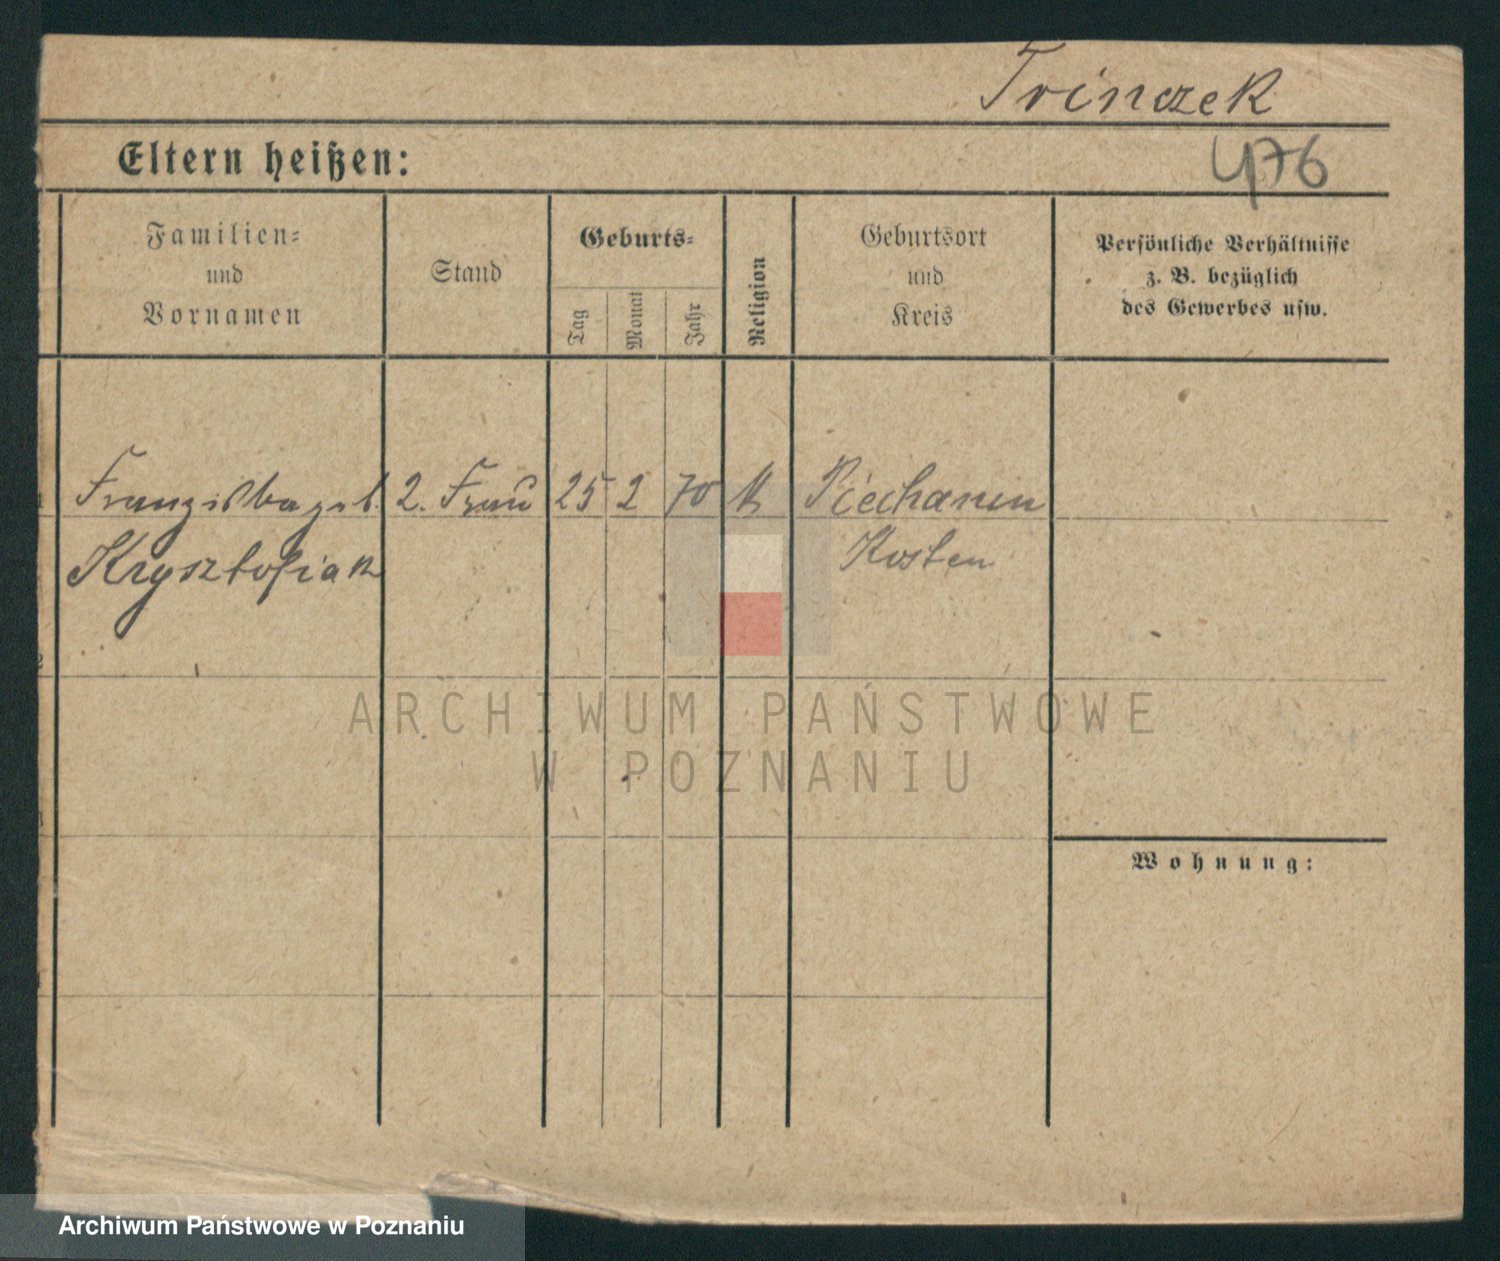 Trinczek
476
Eltern heißen:
Familien=
und
Vornamen
Stand
Geburts=
Tag
Monat
Jahr
Religion
Geburtsort
und
Kreis
Persönliche Verhältnisse
z. B. bezüglich
des Gewerbes usw.
Franziska geb. 2. Frau 25 2 70 k Piechanin
Krysztofiak Kosten
Wohnung:
ARCHIWUM PAŃSTWOWE
W POZNANIU
Archiwum Państwowe w Poznaniu